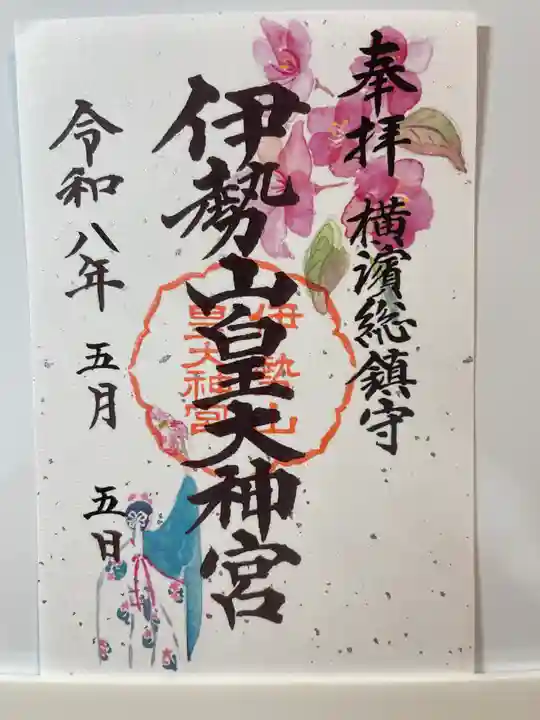 奉拝
横濱総鎮守
伊勢山皇大神宮
伊勢山
皇大神宮
令和八年 五月 五日